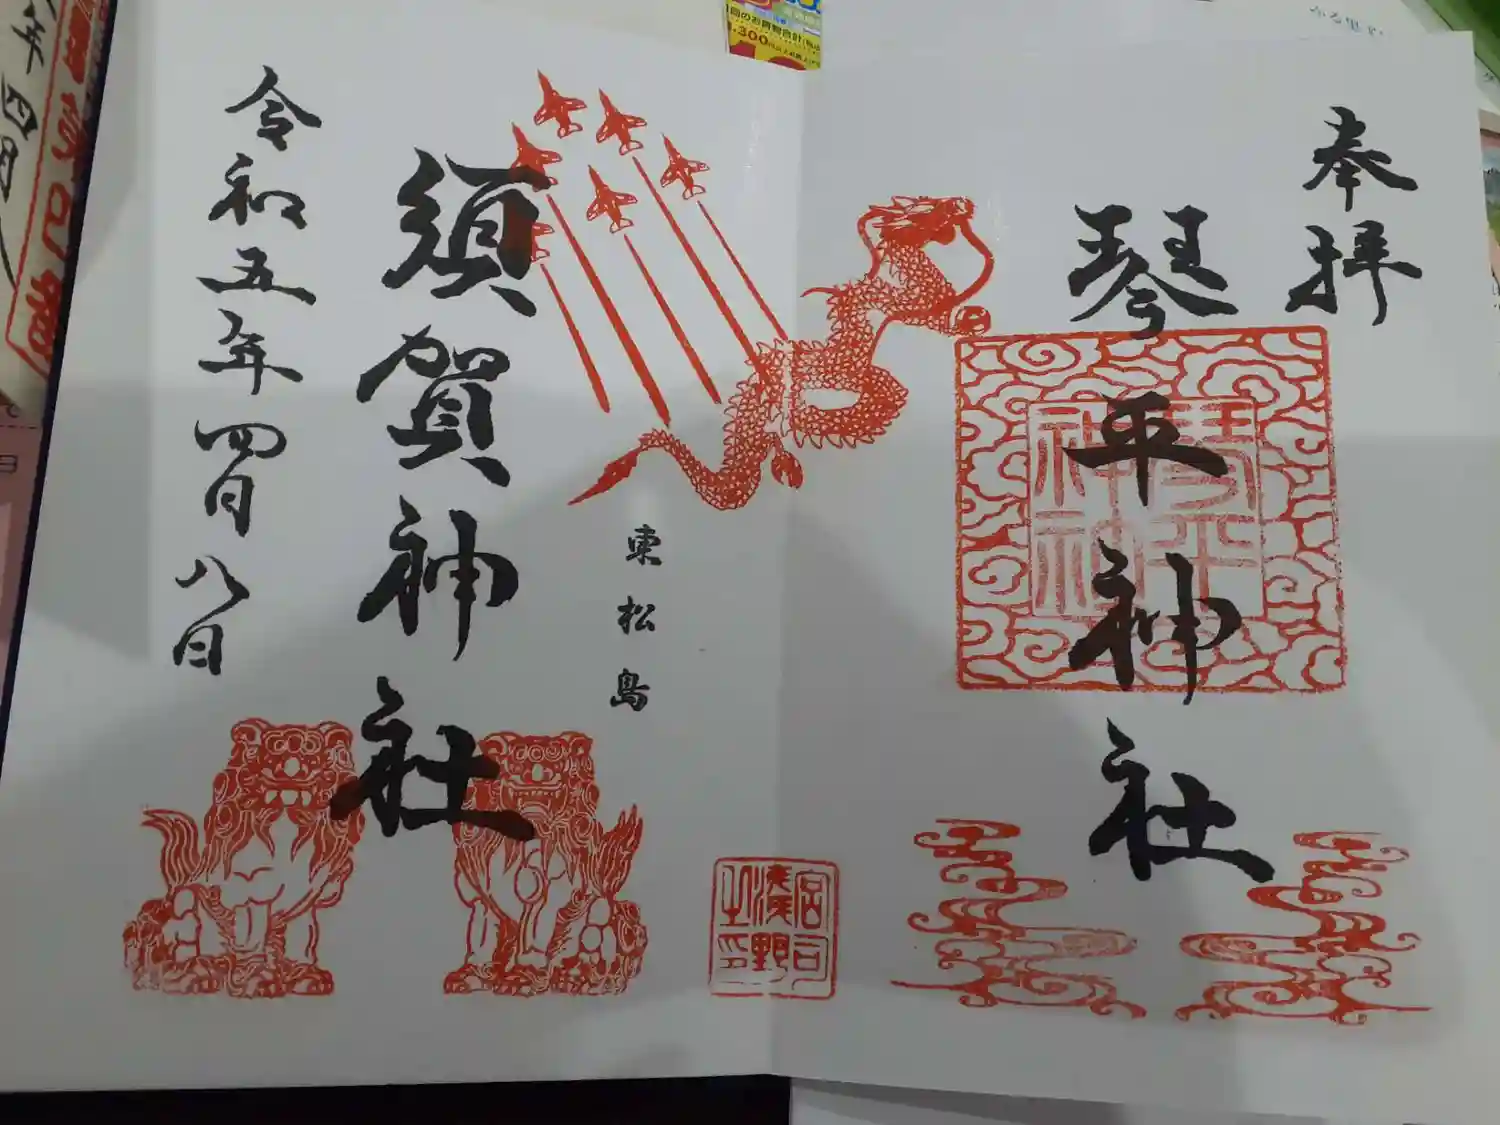 奉拝
琴平神社
琴平神社
東松島
須賀神社
令和五年四月八日
宮司
浅野
之印
年四月八